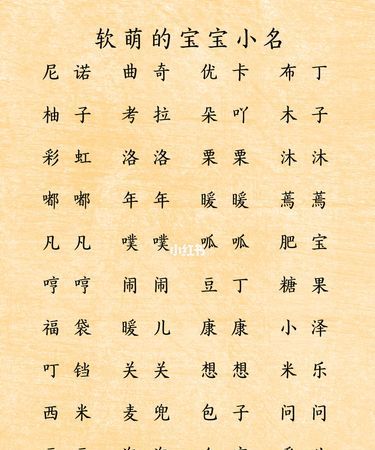 软萌的宝宝小名
尼诺 曲奇 优卡 布丁
柚子 考拉 朵吖 木子
彩虹 洛洛 栗栗 沐沐
嘟嘟 年年 暖暖 蔫蔫
凡凡 噗噗 呱呱 肥宝
小红书
哼哼 闹闹 豆丁 糖果
福袋 暖儿 康康 小泽
叮铛 关关 想想 米乐
西米 麦兜 包子 问问